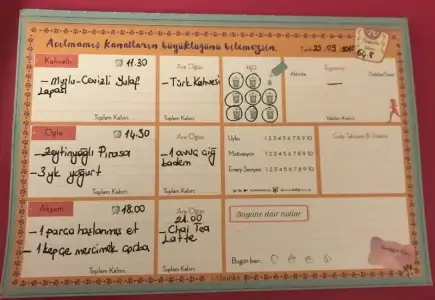 Açılmamış kanatların büyüklüğünü bilemezsin.
Kahvaltı 11.30
Ara Öğün
Egzersiz
64.8
- Muzlu-Cevizli Yulaf
Lapası
- Türk Kahvesi
Toplam Kalori:
Toplam Kalori:
Yakılan Kalori:
Öğle 14.30
Ara Öğün
- Zeytinyağlı Pırasa
- 3 yk yoğurt
- 1 avuç çiğ
badem
Uyku 1 2 3 4 5 6 7 8 9 10
Motivasyon 1 2 3 4 5 6 7 8 9 10
Enerji Seviyesi 1 2 3 4 5 6 7 8 9 10
Toplam Kalori:
Toplam Kalori:
Akşam 18.00
Ara Öğün
21.00
- Chai Tea
Latte
- 1 parça haşlanmış et
- 1 kepçe mercimek çorba
Bugüne dair notlar
Toplam Kalori:
Toplam Kalori:
Bugün ben: